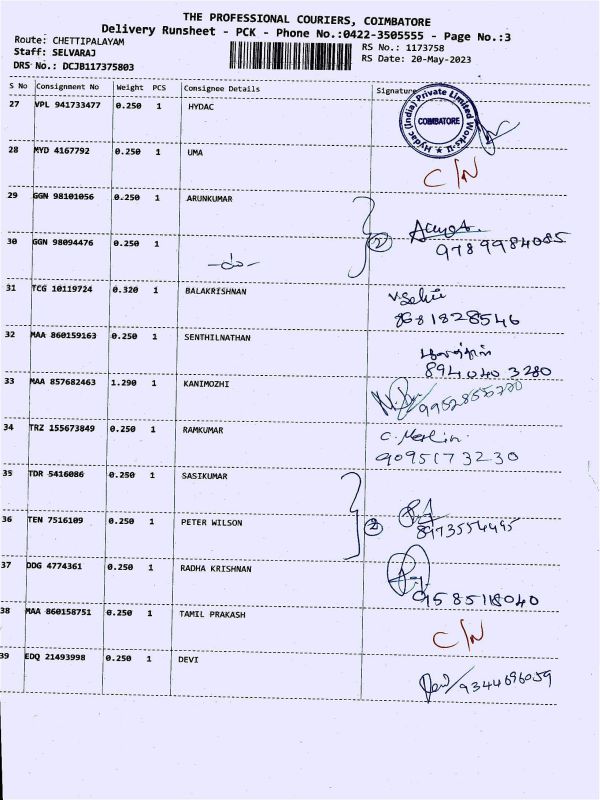 THE PROFESSIONAL COURIERS, COIMBATORE
Delivery Runsheet - PCK - Phone No.:0422-3505555 - Page No.:3
Route: CHETTIPALAYAM
RS No.: 1173758
Staff: SELVARAJ
RS Date: 20-May-2023
DRS No.: DCJB117375803
S No Consignment No Weight PCS Consignee Details Signature
27 VPL 941733477 0.250 1 HYDAC
Hydac (India) Private Limited Works-II ★
COIMBATORE
28 MYD 4167792 0.250 1 UMA
C/N
29 GGN 98101056 0.250 1 ARUNKUMAR
2
9789984085
30 GGN 98094476 0.250 1 -do-
31 TCG 10119724 0.320 1 BALAKRISHNAN
8681828546
32 MAA 860159163 0.250 1 SENTHILNATHAN
8940403280
33 MAA 857682463 1.290 1 KANIMOZHI
34 TRZ 155673849 0.250 1 RAMKUMAR
C. Merlin.
9095173230
35 TDR 5416086 0.250 1 SASIKUMAR
2
8973554495
36 TEN 7516109 0.250 1 PETER WILSON
37 DDG 4774361 0.250 1 RADHA KRISHNAN
9585118040
38 MAA 860158751 0.250 1 TAMIL PRAKASH
C/N
39 EDQ 21493998 0.250 1 DEVI
Devi/9344696059